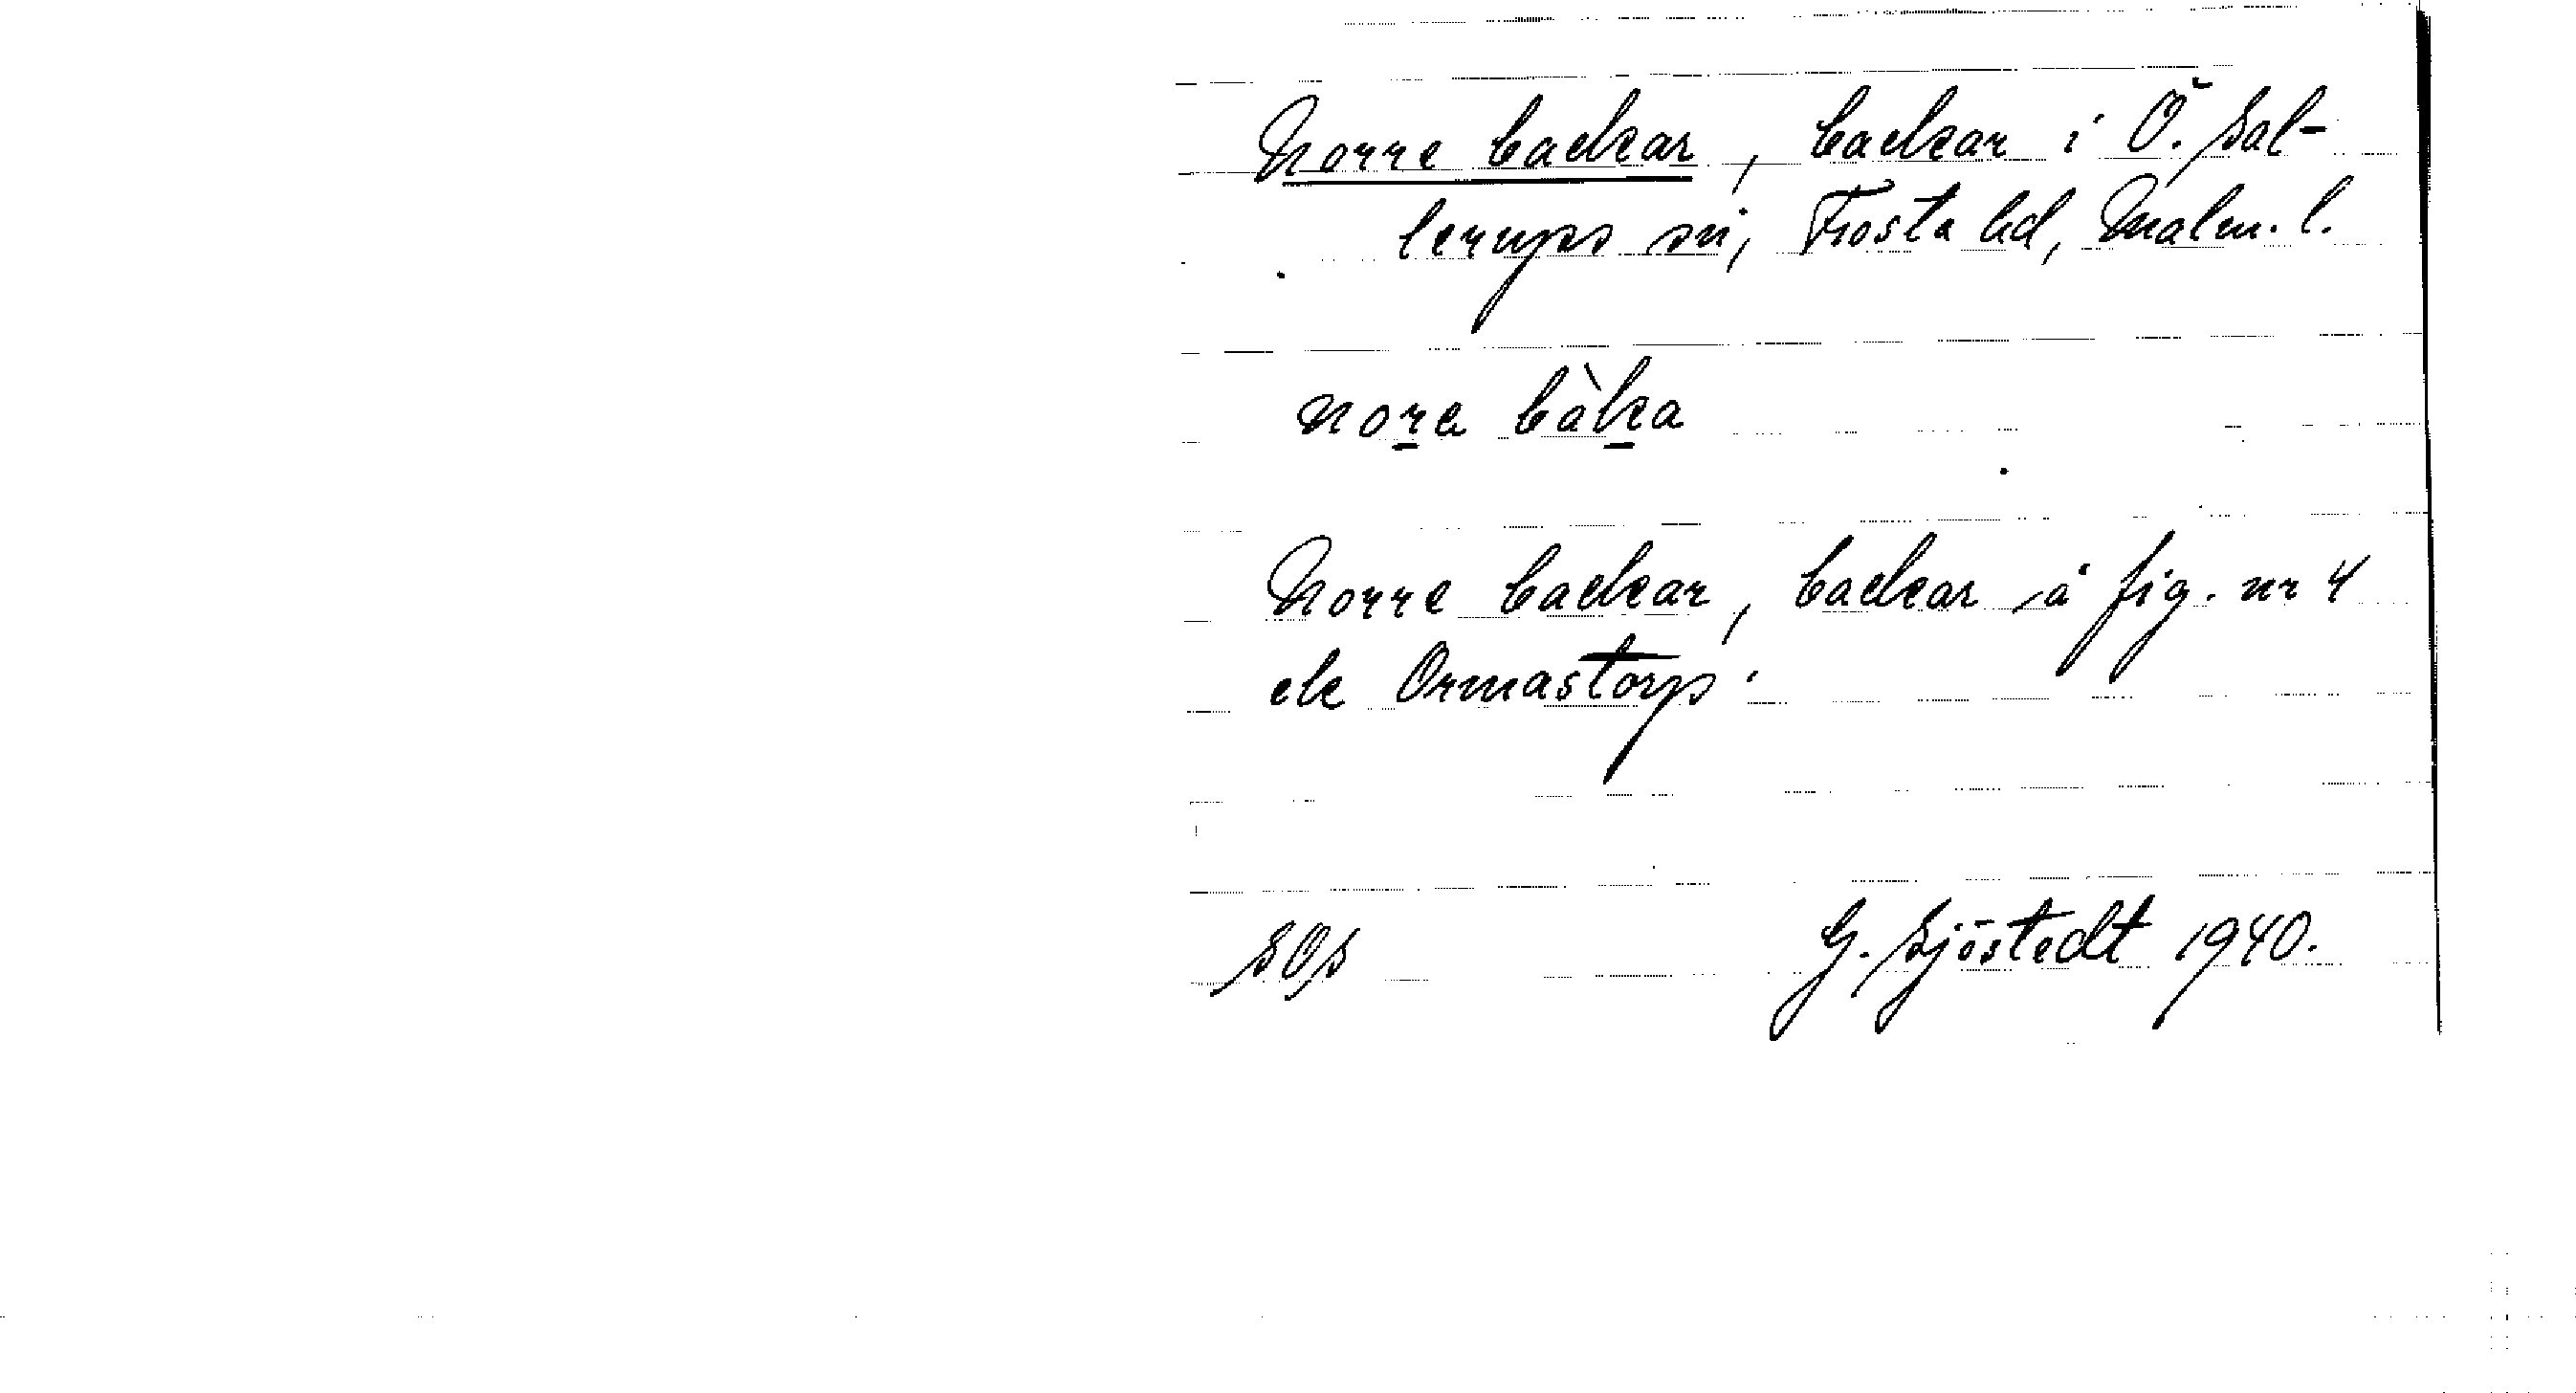 Norre backar, backar i Ö. Sal-
lerups sn, Frosta hd, Malm. l.
nora bàka
Norre backar, backar å fig. nr 4
ek Ormastorp.
SOS G. Sjöstedt 1940.